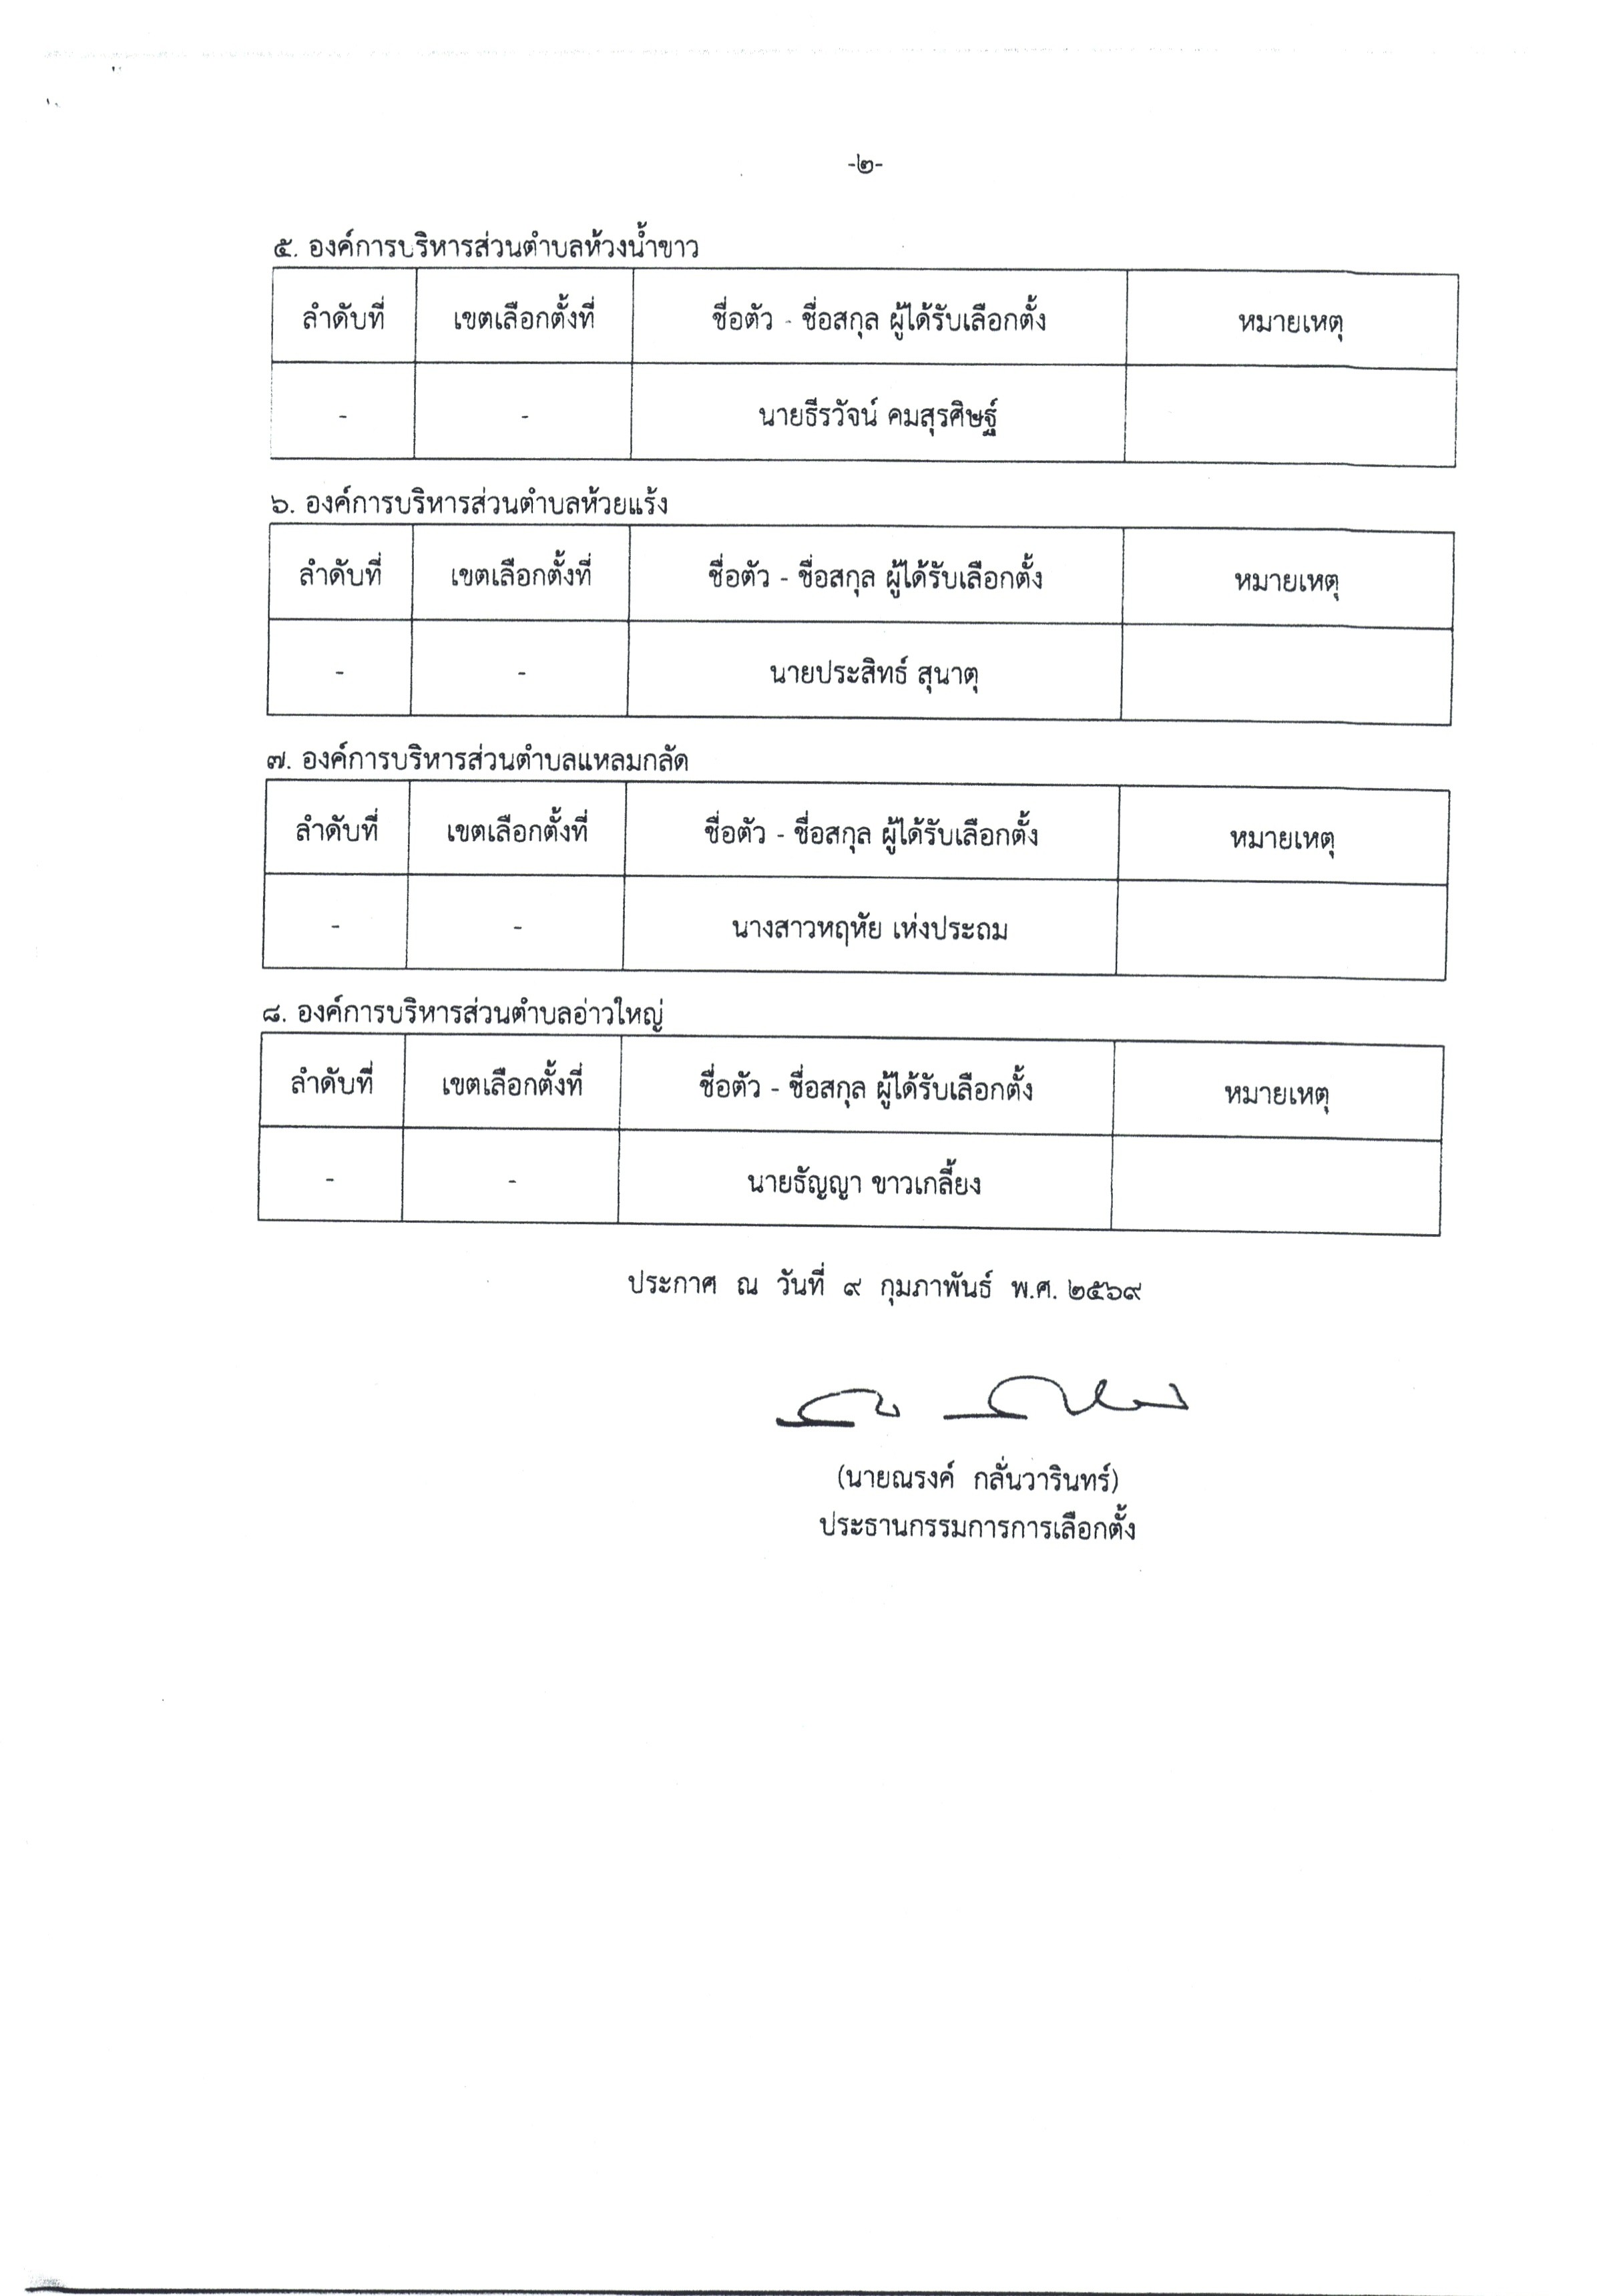 -๒-
๕. องค์การบริหารส่วนตำบลห้วงน้ำขาว
ลำดับที่ เขตเลือกตั้งที่ ชื่อตัว - ชื่อสกุล ผู้ได้รับเลือกตั้ง หมายเหตุ
- - นายธีรวัจน์ คมสุรศิษฐ์
๖. องค์การบริหารส่วนตำบลห้วยแร้ง
ลำดับที่ เขตเลือกตั้งที่ ชื่อตัว - ชื่อสกุล ผู้ได้รับเลือกตั้ง หมายเหตุ
- - นายประสิทธ์ สุนาตุ
๗. องค์การบริหารส่วนตำบลแหลมกลัด
ลำดับที่ เขตเลือกตั้งที่ ชื่อตัว - ชื่อสกุล ผู้ได้รับเลือกตั้ง หมายเหตุ
- - นางสาวหฤหัย เห่งประถม
๘. องค์การบริหารส่วนตำบลอ่าวใหญ่
ลำดับที่ เขตเลือกตั้งที่ ชื่อตัว - ชื่อสกุล ผู้ได้รับเลือกตั้ง หมายเหตุ
- - นายธัญญา ขาวเกลี้ยง
ประกาศ ณ วันที่ ๙ กุมภาพันธ์ พ.ศ. ๒๕๖๙
(นายณรงค์ กลั่นวารินทร์)
ประธานกรรมการการเลือกตั้ง